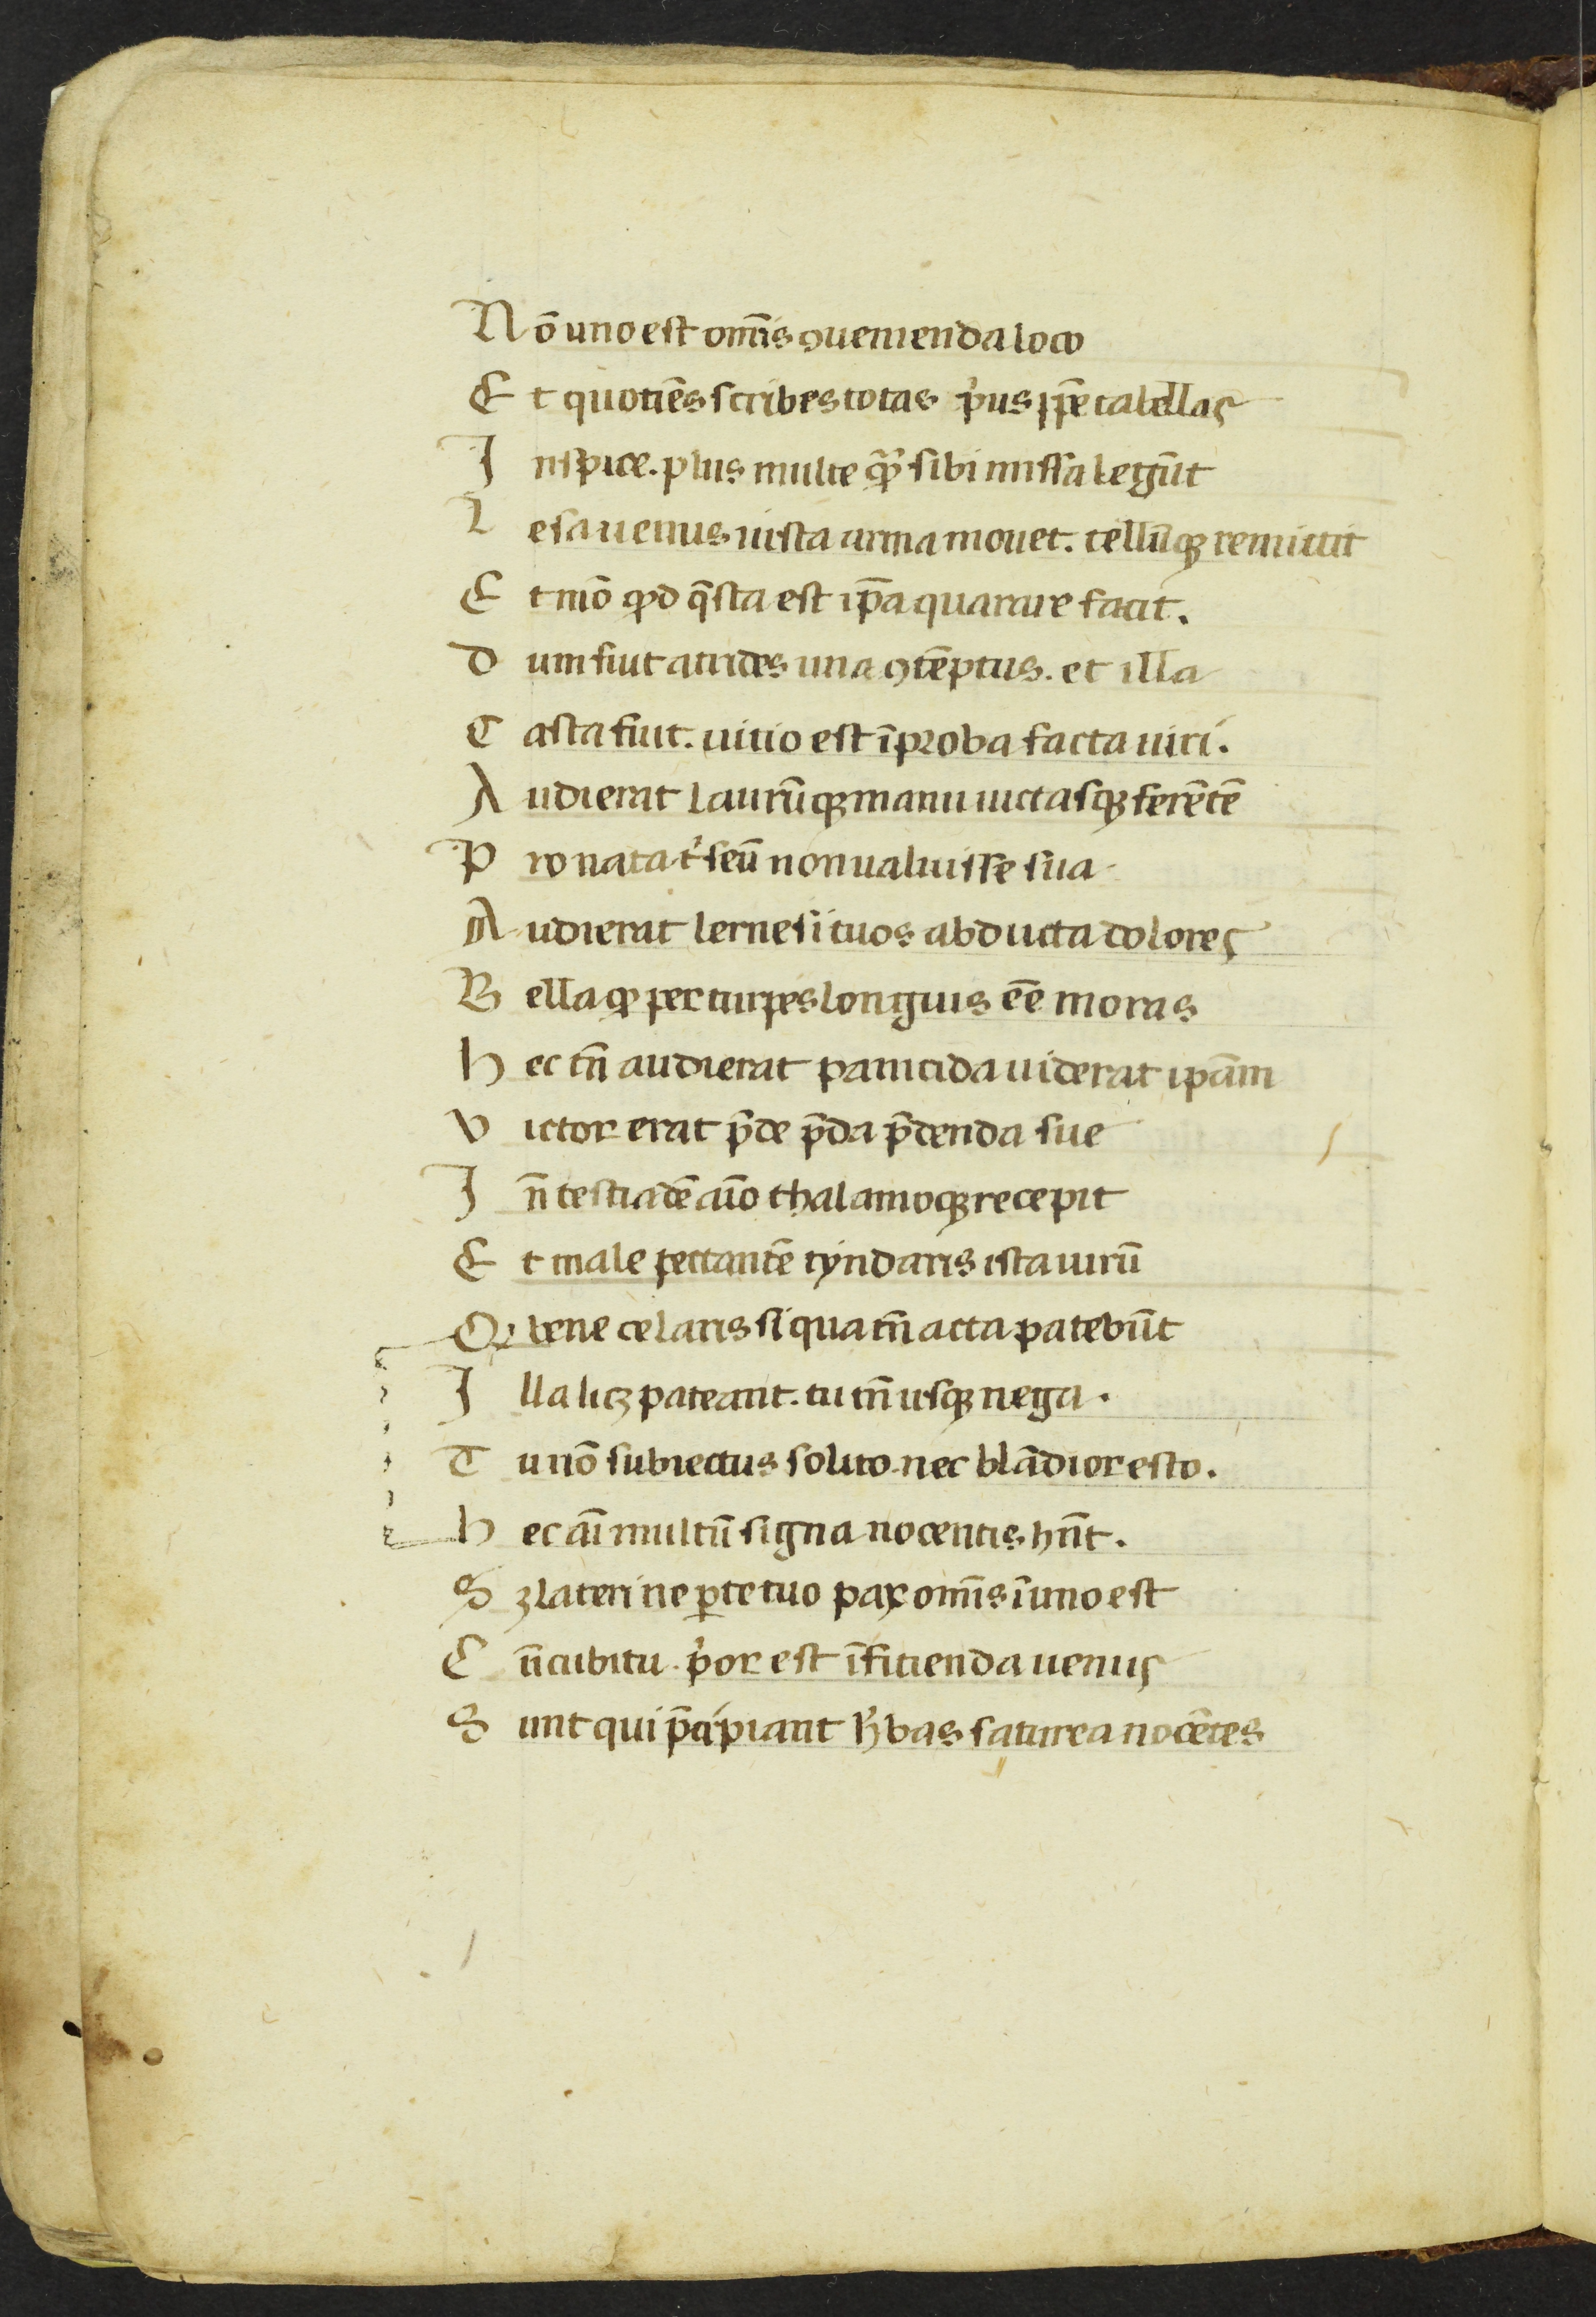 Nō uno est om̄is ꝯuenienda loco
Et quotiēs scribes totas p̓us ip̄e tabellas
Inspice. plus multe q̄ꝫ sibi missa legūt
Lesa uenus iusta arma mouet. tellūqꝫ remittit
Et mō qꝫ q̄sta est ip̄a quarare facit.
Dum fuit atrides una ꝯtēptus. et illa
Casta fuit. uitio est īproba facta uiri.
Audierat laurūqꝫ manu uictasqꝫ ferētē
Pro nata t̓seū non ualuisse sua
Audierat lernesi tuos abducta dolores
Bellaqꝫ per turpes longius eē moras
hec tn̄ audierat pamicida uiderat ip̄am
Victor erat p̄de p̄da p̄denda sue
In̄ testiadē aīo thalamoqꝫ recepit
Et male peccantē tyndaris ista uirū
Q bene celaris si qua tn̄ acta patebūt
Illa licꝫ pateant. tu tn̄ usqꝫ nega.
Tu nō subiectus solito. nec blādior esto.
hec aī multū signa nocentis hn̄t.
Sꝫ lateri ne ꝑce tuo pax om̄is ī uno est
Cn̄cubitu. p̓or est īficienda uenus
Sunt qui p̄cipiant h̓bas saturea nocētes